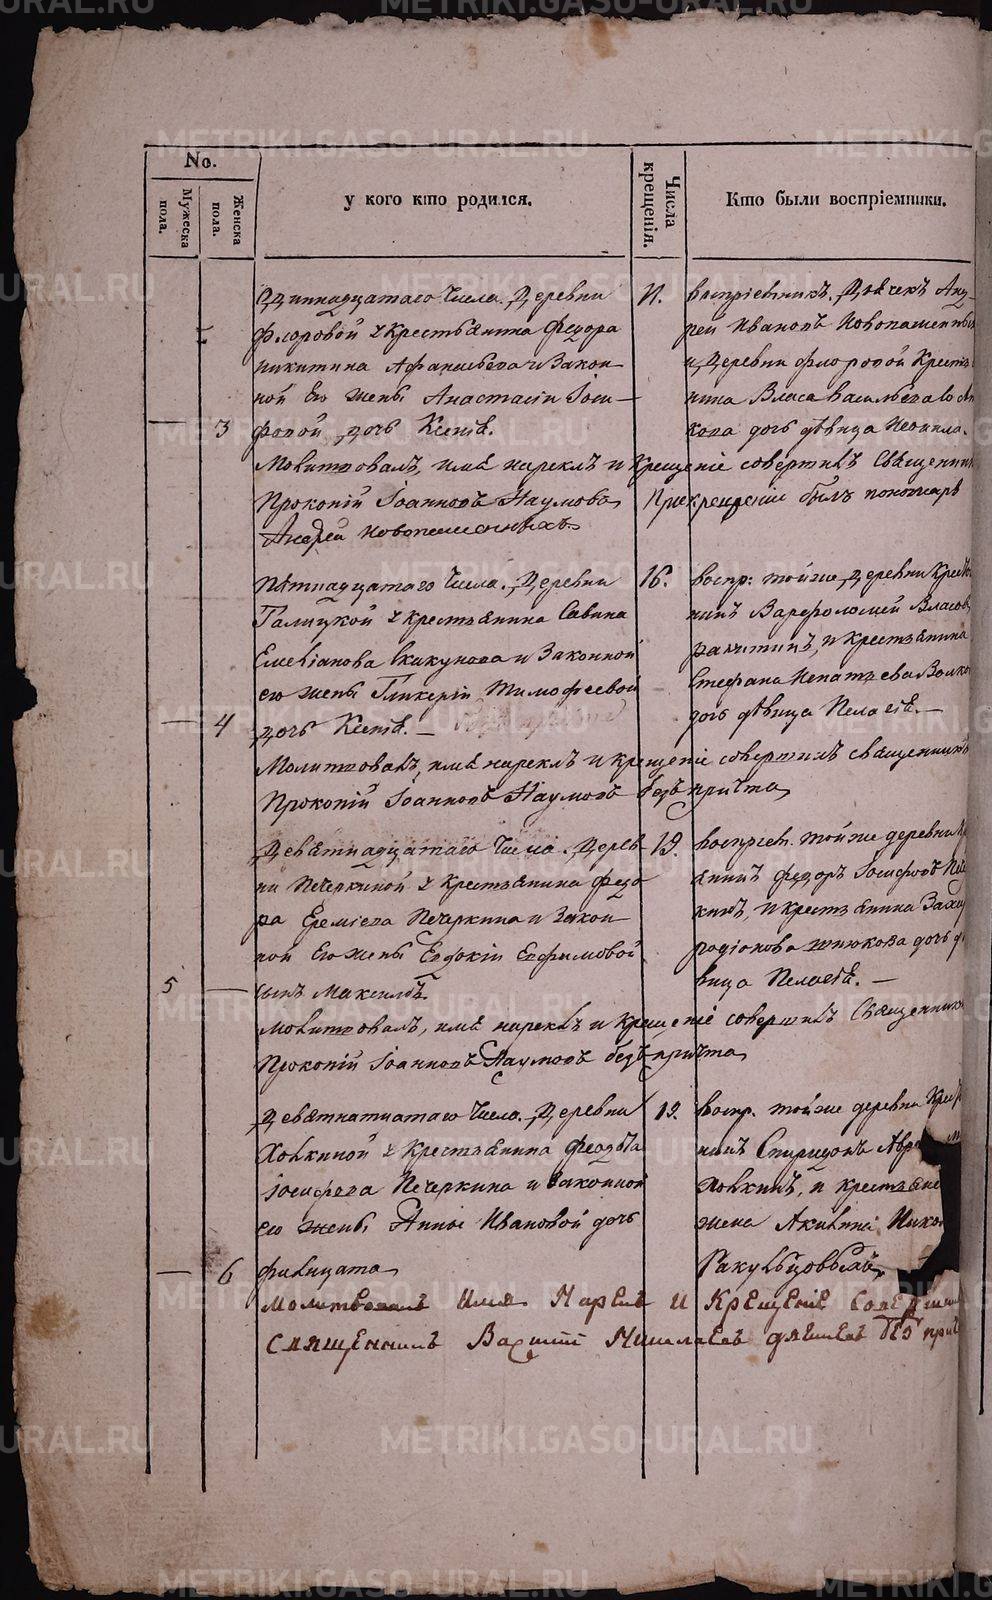 No.
Мужеска пола.
Женска пола.
у кого кто родился.
Числа крещенія.
Кто были воспріемники.
Одиннадцатаго числа. Деревни
Флоровой у крестьянина Федора
Никитина Афанасьева и закон-
ной его жены Анастасіи Іоси-
3
фовой дочь Ксенія.
11.
воспріемникъ. Дьячекъ Анд-
рей Ивановъ Новопашенныхъ
и деревни Флоровой Крестья
нина Власа Васильева
кова дочь дѣвица Неонила.
Молитвовалъ, имя нареклъ и Крещеніе совершилъ Священникъ
Прокопій Іоанновъ Наумовъ При крещеніи былъ пономарь
Андрей Новопашенныхъ
Пятнадцатаго числа. Деревни
Галицкой у крестьянина Савина
Емеліанова Скакунова и законной
его жены Гликеріи Тимофеевой
4
дочь Ксенія. —
16.
воспр: тойже деревни Крестья
нинъ Варфоломей Власовъ
и крестьянина
Стефана Ипатьева Волко
дочь дѣвица Пелагія. —
Молитвовалъ, имя нареклъ и крещеніе совершилъ священникъ
Прокопій Іоанновъ Наумовъ безъ причта
Девятнадцатаго числа. Дерев-
ни Печеркиной у Крестьянина Федо
ра Еремѣева Печеркина и закон-
ной его жены Евдокіи Евфимовой
5
сынъ Максимъ.
19.
воспріем. тойже деревни Кр
янинъ Федоръ Іосифовъ Пече
кинъ, и крестьянина Заха
Родіонова дочь дѣ
вица Пелагія. —
Молитвовалъ, имя нареклъ и крещеніе совершилъ Священникъ
Прокопій Іоанновъ Наумовъ безъ причта
Девятнатцатаго числа. Деревни
Ховкиной у Крестьянина Феодота
Іосифова Печеркина и законной
его жены Анны Ивановой дочь
6
Филицата
19.
воспр. тойже деревни Крест
нинъ Спиридонъ Авра
Ховкинъ, и крестьяне
жена Акилина Нико
Ракульцовыхъ
Молитвовалъ Имя Нареклъ И Крещеніе Соверши
Священникъ Василій Николаевъ Дягилевъ безъ прич